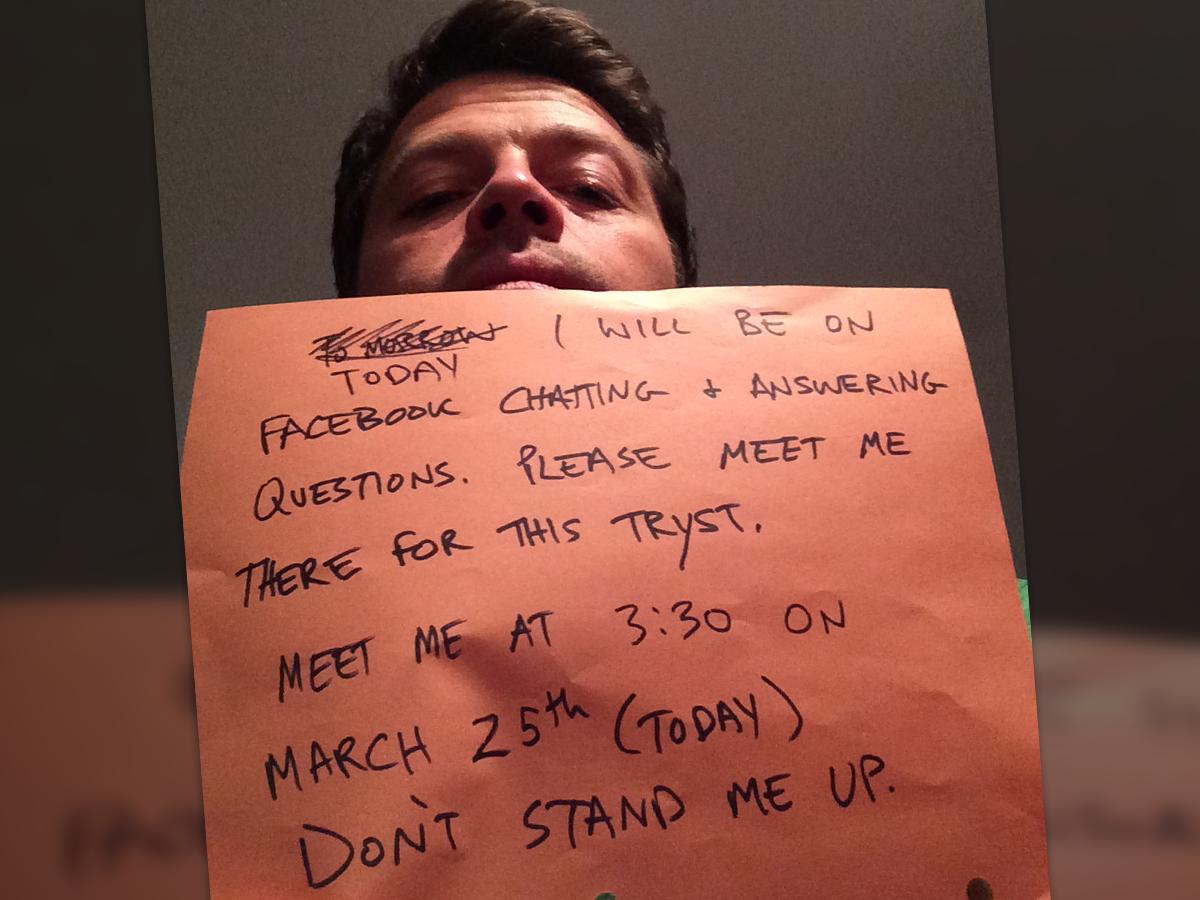 TOMORROW I WILL BE ON
TODAY
FACEBOOK CHATTING + ANSWERING
QUESTIONS. PLEASE MEET ME
THERE FOR THIS TRYST.
MEET ME AT 3:30 ON
MARCH 25th (TODAY)
DON'T STAND ME UP.